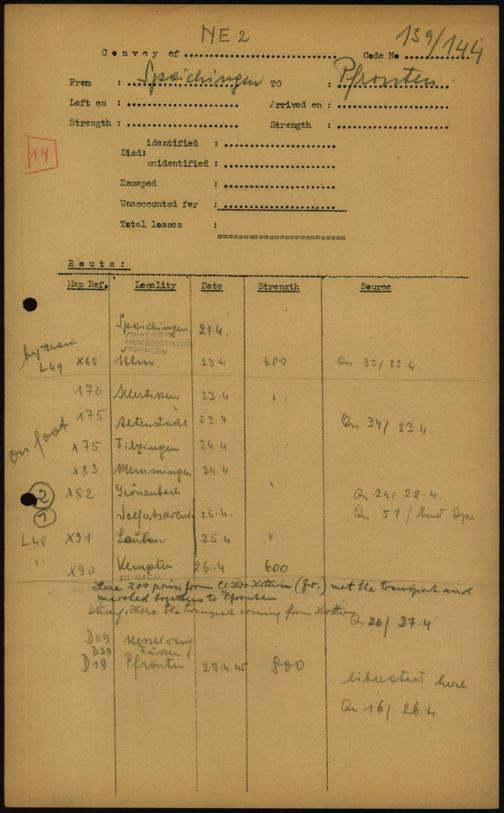 NE 2
139/144
Convoy of ........ Code No ........
From : Spaichingen TO : Pfronten
Left on : ........ Arrived on : ........
Strength : ........ Strength : ........
14
identified : ........
Died:
unidentified : ........
Escaped : ........
Unaccounted for : ........
Total losses :
Route:
Map Ref. Locality Date Strength Source
Spaichingen 21.4.
by train
L49 X68 Ulm 23.4 680 Qn 33/23.4.
176 Illertissen 23.4 "
on foot
X75 Altenstadt 23.4 Qn 34/ 23 4.
X75 Filzingen 24.4
X83 Memmingen 24.4
2 X82 Grönenbach " Qn 29/ 22.4.
1 25.4. Qn 51/
L48 X91 Lauben 25.4 "
" X90 Kempten 26.4 600
DURACH
Here 200 pris. from (Fr.) met the transport and
marched together to Pfronten.
Here the transport coming from Kottern
Qn 26/ 27.4
D09 Nesselwang
D29 Füssen
D19 Pfronten 27.4.45 800
liberated here
Qn 16/ 26.4